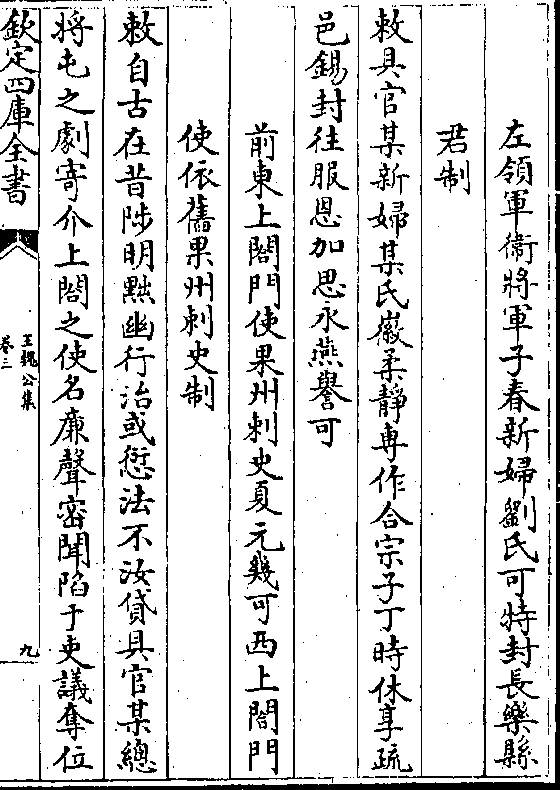 左領軍衛將軍子春新婦劉氏可特封長樂縣
君制
敕具官某新婦某氏徽柔靜專作合宗子丁時休享疏
邑錫封往服恩加思永燕譽可
前東上閤門使果州刺史夏元幾可西上閤門
使依舊果州刺史制
敕自古在昔陟明黜幽行治或愆法不汝貸具官某總
將屯之劇寄介上閤之使名廉聲密聞陷于吏議奪位
欽定四庫全書
王魏公集
卷三
九